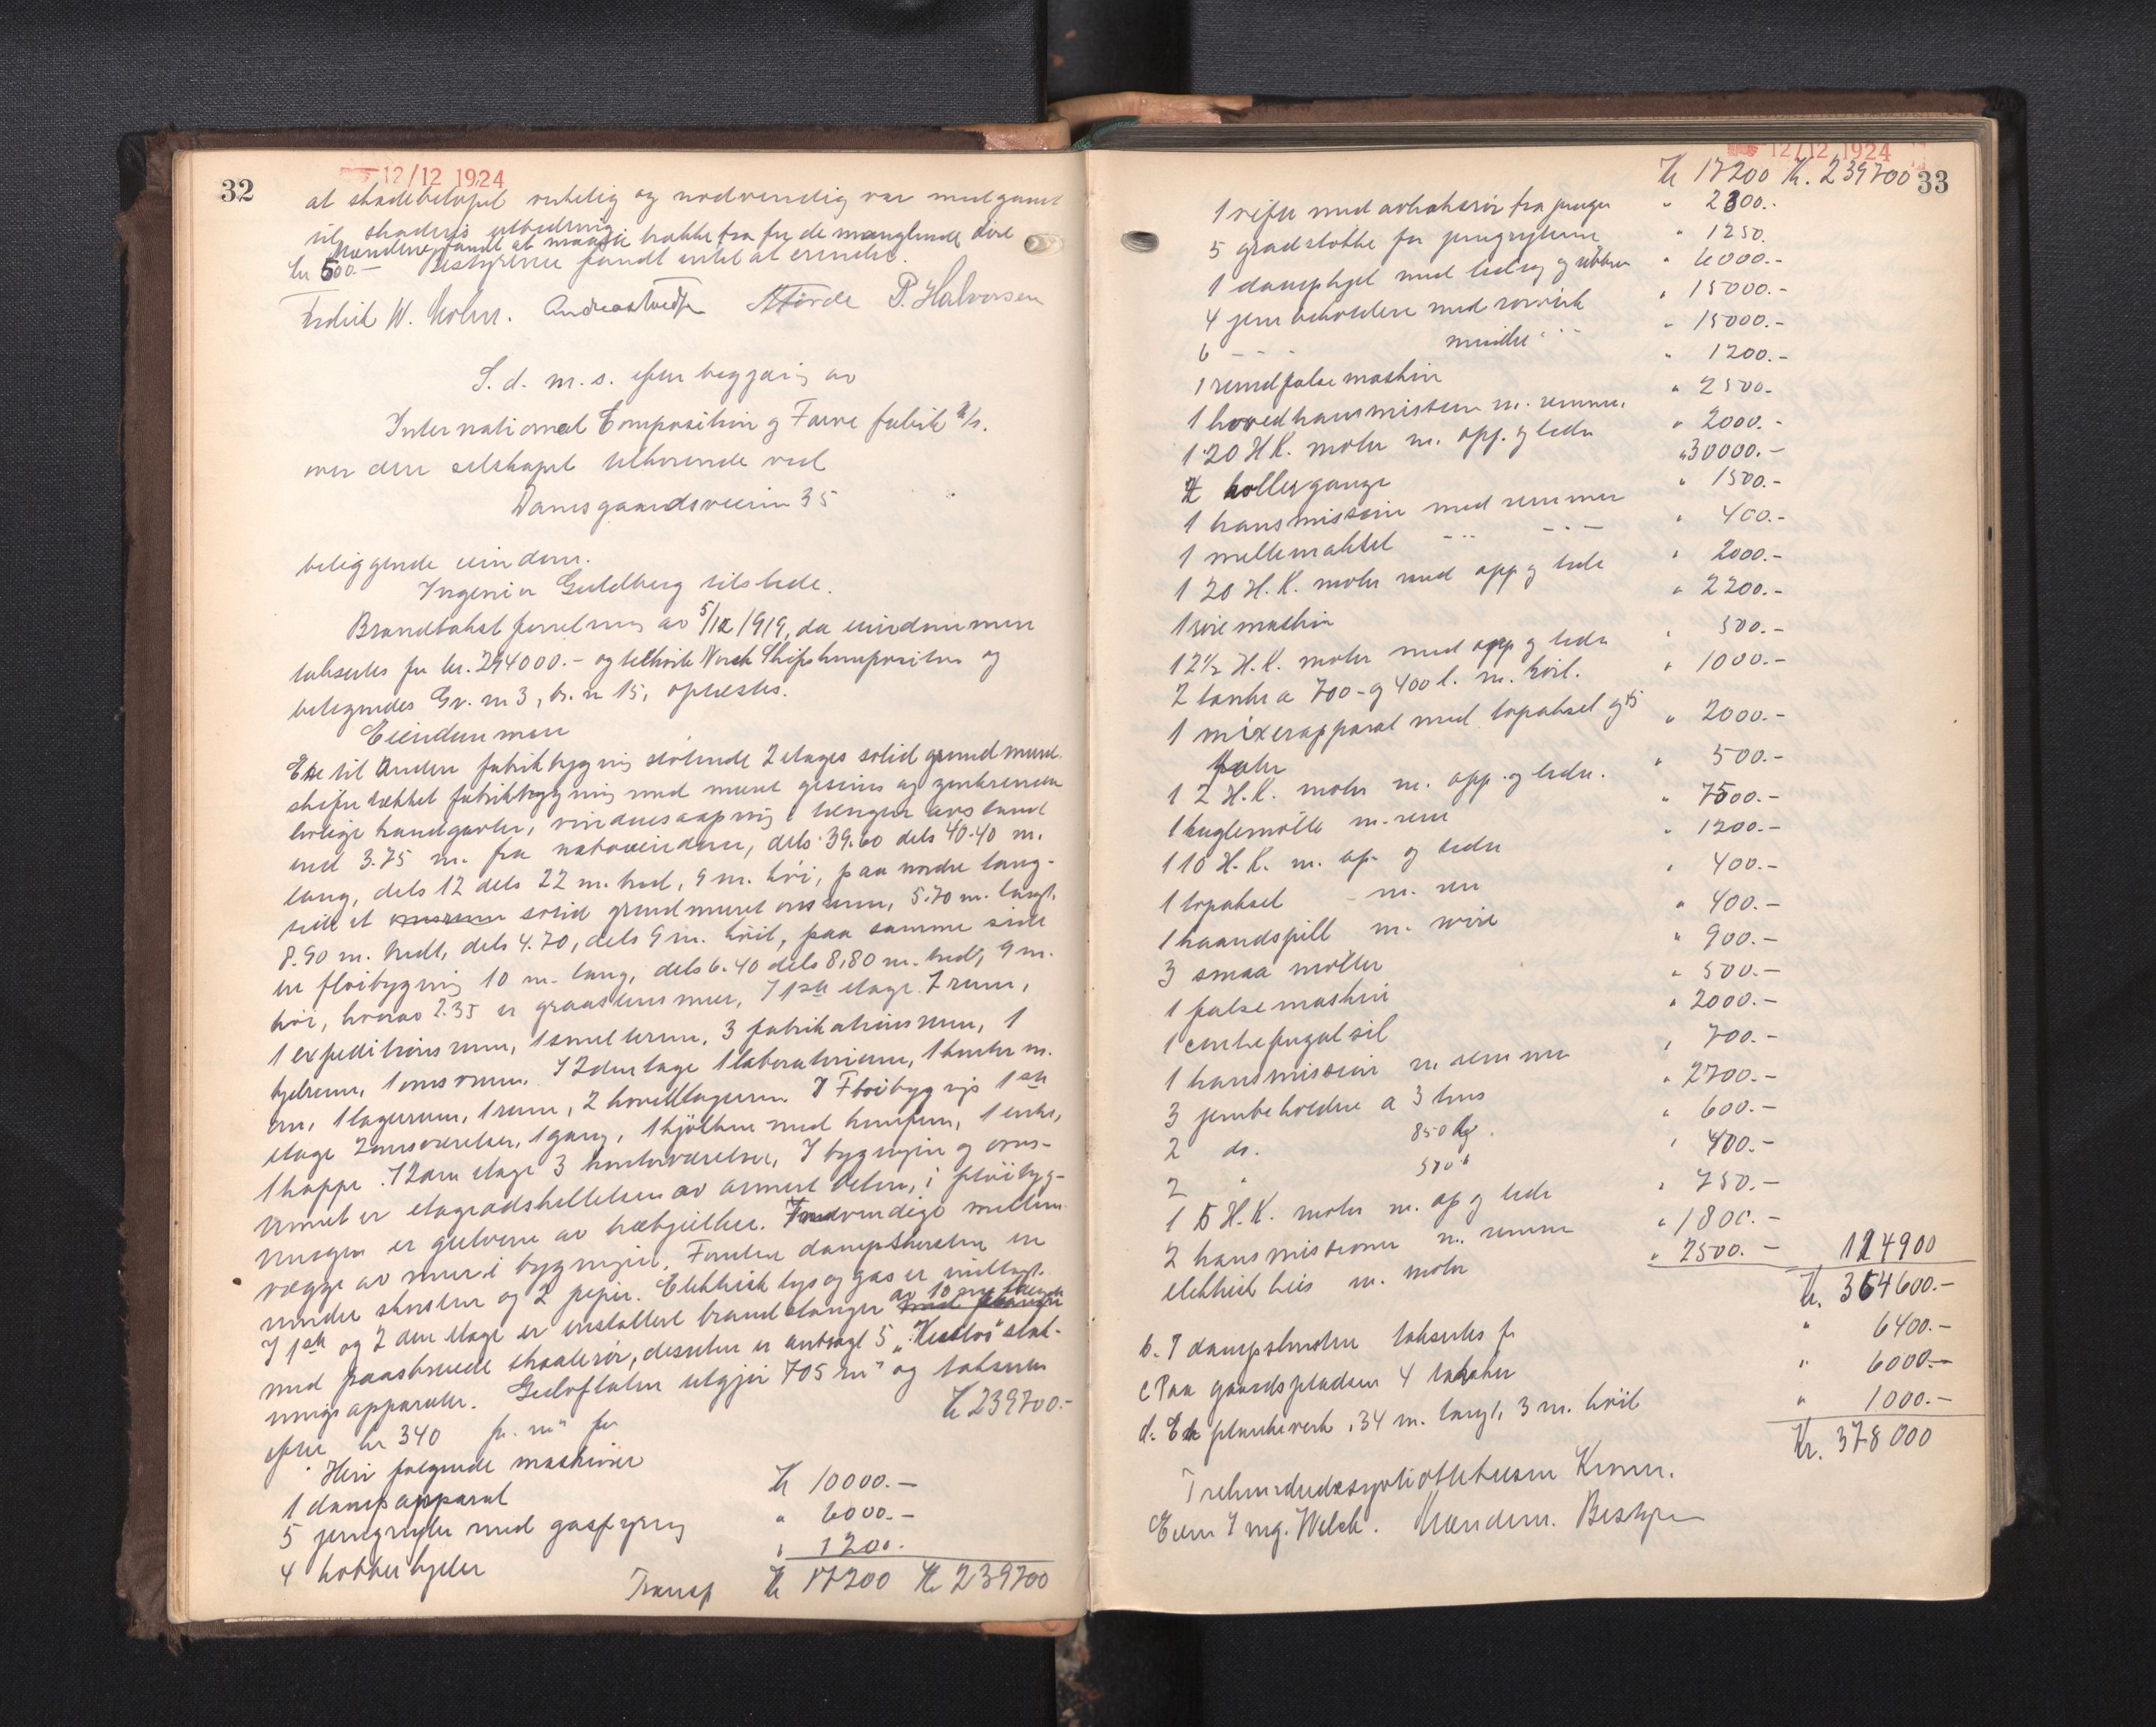 32
12/12 1924
at skadebeløpet rikelig og nødvendig var medgaaet
til skadens utbedring
Mændene fandt at maatte trække fra for de manglende döre
kr 500.- Bestyreren fandt intet at erindre.
Fredrik W. Holm. Andreas Tvedt A Förde P. Halvorsen
S. d. m. s. efter begjæring av
International Composition og Farve fabrik A/S.
over den selskapet tilhørende ved
Damsgaardsveien 35
beliggende eiendom.
Ingeniør Guldberg tilstede.
Brandtakst forretning av 5/12 1919, da eiendommen
taksertes for kr. 294000.- og tilhørte Norsk Skipskomposition og
betegnedes Gr. nr 3, br. nr 15, oplæstes.
Eiendommen
En til anden fabrikbygning støtende 2 etages solid grundmuret
skifertækket fabrikbygning med muret gesims og zinkrender
lovlige brandgavler, vinduesaapning i længere avstand
end 3.75 m. fra naboeiendom, dels 39.60 dels 40.40 m.
lang, dels 12 dels 22 m. bred, 9 m. höi, paa nordre lang-
side et solid grundmuret ovnsrum, 5.70 m. langt,
8.90 m. bredt, dels 4.70, dels 9 m. höit, paa samme side
en flöibygning 10 m. lang, dels 6.40 dels 8,80 m. bred, 9 m.
höi, hvorav 2.35 er graastensmur, I 1ste etage 7 rum,
1 expeditionsrum, 1 smelterum, 3 fabrikationsrum, 1
kjelrum, 1 ovnsrum. I 2den etage 1 laboratorium, 1 kontor m.
ovn, 1 lagerrum, 1 rum, 2 hovedlagerrum. I Flöibygnings 1ste
etage 2 ovnsværelser, 1 gang, 1 kjökken med komfur, 1 entre,
1 trappe. I 2den etage 3 kontorværelser, I bygningen og ovns-
rummet er etageadskillelsen av armert beton, i flöibyg-
ningen er gulvene av træbjelker. Indvendige mellem
vægge av mur i bygningen, Foruten dampskorsten en
mindre skorsten og 2 piper. Elektrisk lys og gas er indlagt.
I 1ste og 2den etage er installert brandslanger av 10 m længde
med paaskruede straalerör, desuten er anbragt 5 „Kustos" sluk-
ningsapparater. Gulvflaten utgjør 705 m² og takseres
efter kr 340 pr. m² for Kr 239700.-
Heri følgende maskiner
1 dampapparat Kr 10000.-
5 jerngryter med gasfyring " 6000.-
4 kobberkjeler " 1200.
Transp Kr 17200 Kr 239700
33
12/12 1924
Kr 17200 Kr. 239700
1 vifte med avtraksrör fra jerngr " 2300.-
5 gradstokke for jerngryterne " 1250.
1 dampkjel med ledng og tilbehör " 6000.-
4 jernbeholdere med rörverk " 15000.-
6 - - - mindre " - - " 15000.-
1 rundfalsemaskin " 1200.-
1 hovedtransmission m. remmer " 2500.-
1 20 H.K. motor m. app. og ledn " 2000.-
4 kollergange " 30000.-
1 transmission med remmer " 1500.-
1 mellemaksel - - - - - " 400.-
1 20 H.K. motor med app og ledn " 2000.-
1 rivemaskin " 2200.-
1 2½ H.K. motor med app og ledn " 500.-
2 tanker a 700- og 400 l. m. hvil. " 1000.-
1 mixerapparat med topaksel og 15
foter " 2000.-
1 2 H.K. motor m. app. og ledn. " 500.-
1 kuglemölle m. rem " 7500.-
1 10 H.K. m. ap. og ledn " 1200.-
1 topaksel - m. rem " 400.-
1 haandspill m. wire " 400.-
3 smaa möller " 900.-
1 falsemaskin " 500.-
1 centrifugalsil " 2000.-
1 transmission m remmer " 700.-
3 jernbeholdere a 3 tons " 2700.-
2 do. 850 kg. " 600.-
2 " 500 " " 400.-
1 15 H.K. motor m. ap og ledn " 750.-
2 transmissioner m. remme " 1800.-
elektrisk heis m. motor " 2500.- 124900
Kr. 364600.-
b. 1 dampskorsten takseres for " 6400.-
c Paa gaardspladsen 4 tanker " 6000.-
d. Et plankeverk, 34 m. langt, 3 m. höit " 1000.-
Kr. 378000
Trehundredesyttiottetusen Kroner.
Eieren Ing. Welsh. Mændene. Bestyrer